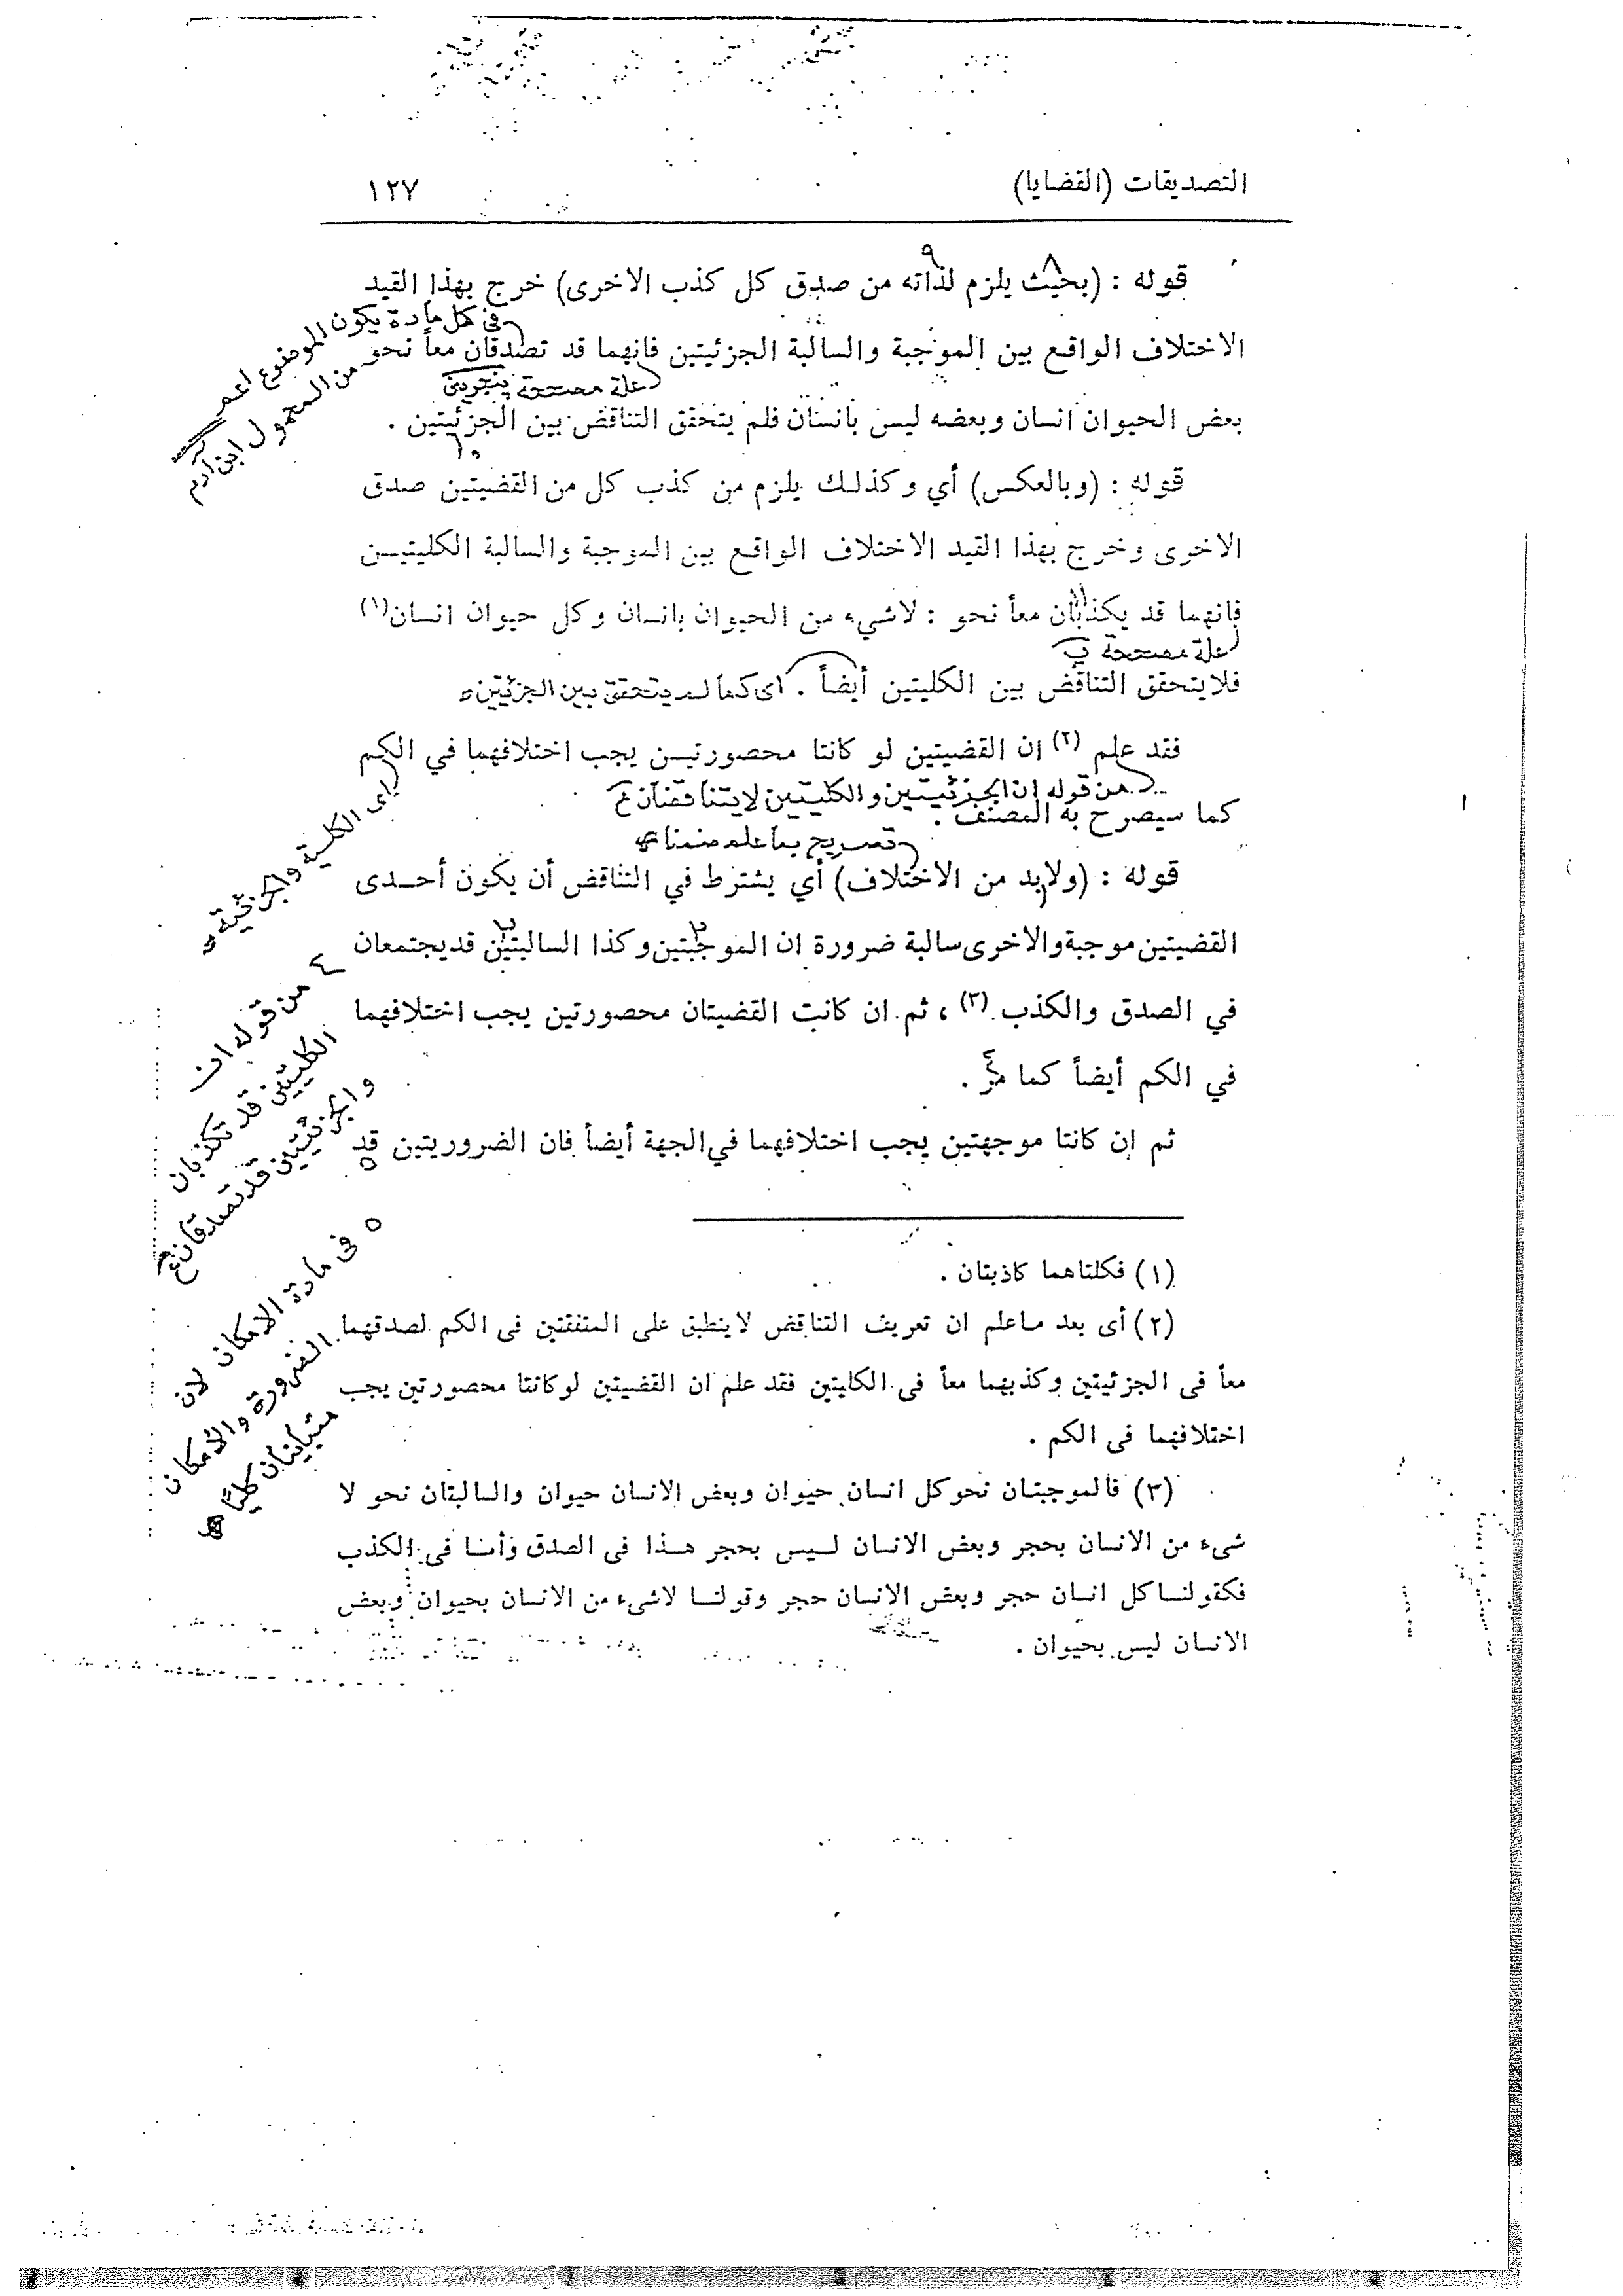 التصديقات (القضايا) ١٢٧
قوله : (بحيث يلزم لذاته من صدق كل كذب الاخرى) خرج بهذا القيد
٨ ٩
الاختلاف الواقع بين الموجبة والسالبة الجزئيتين فانهما قد تصدقان معاً نحو
فى كل مادة يكون الموضوع اعم
من المحمول ابن آدم
علة مصححة
بعض الحيوان انسان وبعضه ليس بانسان فلم يتحقق التناقض بين الجزئيتين .
١٠
قوله : (وبالعكس) أي وكذلك يلزم من كذب كل من القضيتين صدق
الاخرى وخرج بهذا القيد الاختلاف الواقع بين الموجبة والسالبة الكليتين
فانهما قد يكذبان معاً نحو : لاشيء من الحيوان بانسان وكل حيوان انسان(١)
علة مصححة
فلايتحقق التناقض بين الكليتين أيضاً .
اى كما لم يتحقق بين الجزئيتين
فقد علم (٢) ان القضيتين لو كانتا محصورتين يجب اختلافهما في الكم
من قوله ان الجزئيتين والكليتين لايتناقضان
اى الكلية والجزئية
كما سيصرح به المصنف .
تصريح بما علم ضمنا
قوله : (ولابد من الاختلاف) أي يشترط في التناقض أن يكون أحدى
القضيتين موجبة والاخرى سالبة ضرورة ان الموجبتين وكذا السالبتين قديجتمعان
في الصدق والكذب (٣) ، ثم ان كانت القضيتان محصورتين يجب اختلافهما
في الكم أيضاً كما مر .
٤ من قوله ان
الكليتين قد تكذبان
والجزئيتين قد تصدقان
ثم إن كانتا موجهتين يجب اختلافهما في الجهة أيضاً فان الضروريتين قد
٥ فى مادة الامكان لان
الضرورة والامكان
متباينان كليّاً
(١) فكلتاهما كاذبتان .
(٢) أى بعد ماعلم ان تعريف التناقض لاينطبق على المتفقتين فى الكم لصدقهما
معاً فى الجزئيتين وكذبهما معاً فى الكليتين فقد علم ان القضيتين لوكانتا محصورتين يجب
اختلافهما فى الكم .
(٣) فالموجبتان نحوكل انسان حيوان وبعض الانسان حيوان والسالبتان نحو لا
شىء من الانسان بحجر وبعض الانسان ليس بحجر هذا فى الصدق وأما فى الكذب
فكقولنا كل انسان حجر وبعض الانسان حجر وقولنا لاشىء من الانسان بحيوان وبعض
الانسان ليس بحيوان .